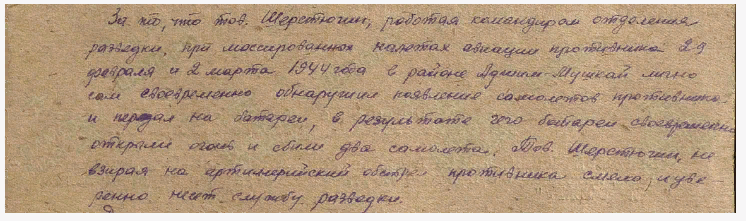 За то, что тов. Шерстюгин, работая командиром отделения
разведки, при массированных налетах авиации противника 29
февраля и 2 марта 1944 года в районе Аджим-Мушкай лично
сам своевременно обнаружил появление самолетов противника
и передал на батареи, в результате чего батареи своевременно
открыли огонь и сбили два самолета. Тов. Шерстюгин, не
взирая на артиллерийский обстрел противника смело, уве
ренно несет службу разведки.